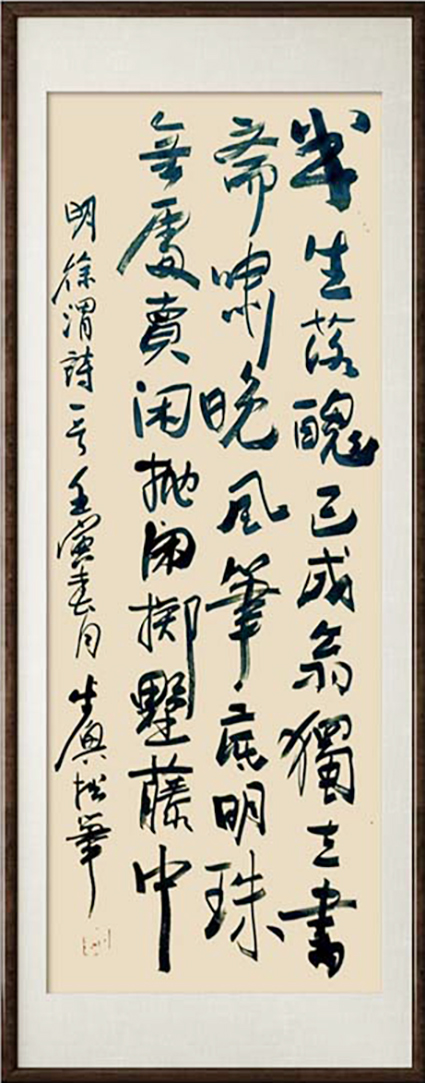 半生落魄已成翁獨立書
斋嘯晚風筆底明珠
無處賣闲抛闲掷墅藤中
明徐渭詩一首壬寅春月松筆